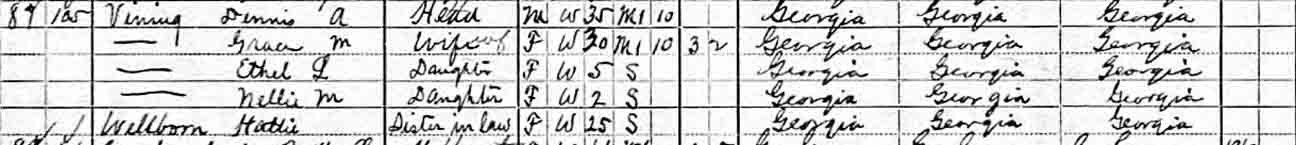 89 125 Vining Dennis A Head M W 35 M1 10 Georgia Georgia Georgia
— Grace M Wife of F W 30 M1 10 3 2 Georgia Georgia Georgia
— Ethel L Daughter F W 5 S Georgia Georgia Georgia
— Nellie M Daughter F W 2 S Georgia Georgia Georgia
Wellborn Hattie Sister in law F W 25 S Georgia Georgia Georgia